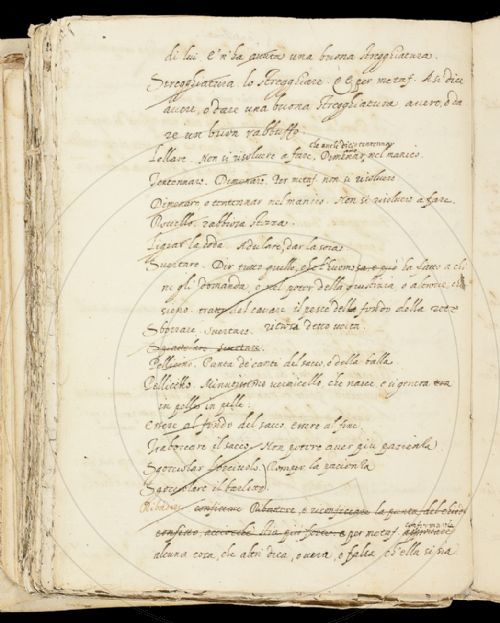 di lui e n'ha avuta una buona streghiatura.
Streghiatura lo streghiare. e per metaf. Si dice
avere, o dare una buona streghiatura avere, o da
re un buon rabbuffo.
che anche dicesi tentennar
Lellare. Non si risolvere a fare. Dimenar nel manico.
Tentennare. Dimenare. Per metaf. non si risolvere
Dimenare, o tentennare nel manico. Non si risolvere a fare.
Rovello. rabbiosa stizza.
Liquar la coda. Adulare, dar la soia
Svertare. Dir tutto quello, ha fatto a chi
ne gli domanda, o nel poter della giustizia, o altrove, che
sieno. tratto dal cavare il pesce del fondo della rete
Sborrare. svertare. detto
Sgusciolare svertare.
Pellicino. Punta de canti del sacco, o della balla
Pellicello. Minutissimo vermicello, che nasce, e si genera
in pelle in pelle.
Essere al fondo del sacco. essere al fine.
Traboccare il sacco. Non potere aver più pazienza
Sgocciolar l'orciuolo. Romper la pacienza
Sgocciolare il barletto.
Ribadire confittare Ribattere, e riconficcare la punta del chiodo
confitto, acciocchè stia più forte. e per metaf. confermare
alcuna cosa, che altri dica, o voglia, o faccia, ch'ella si sia